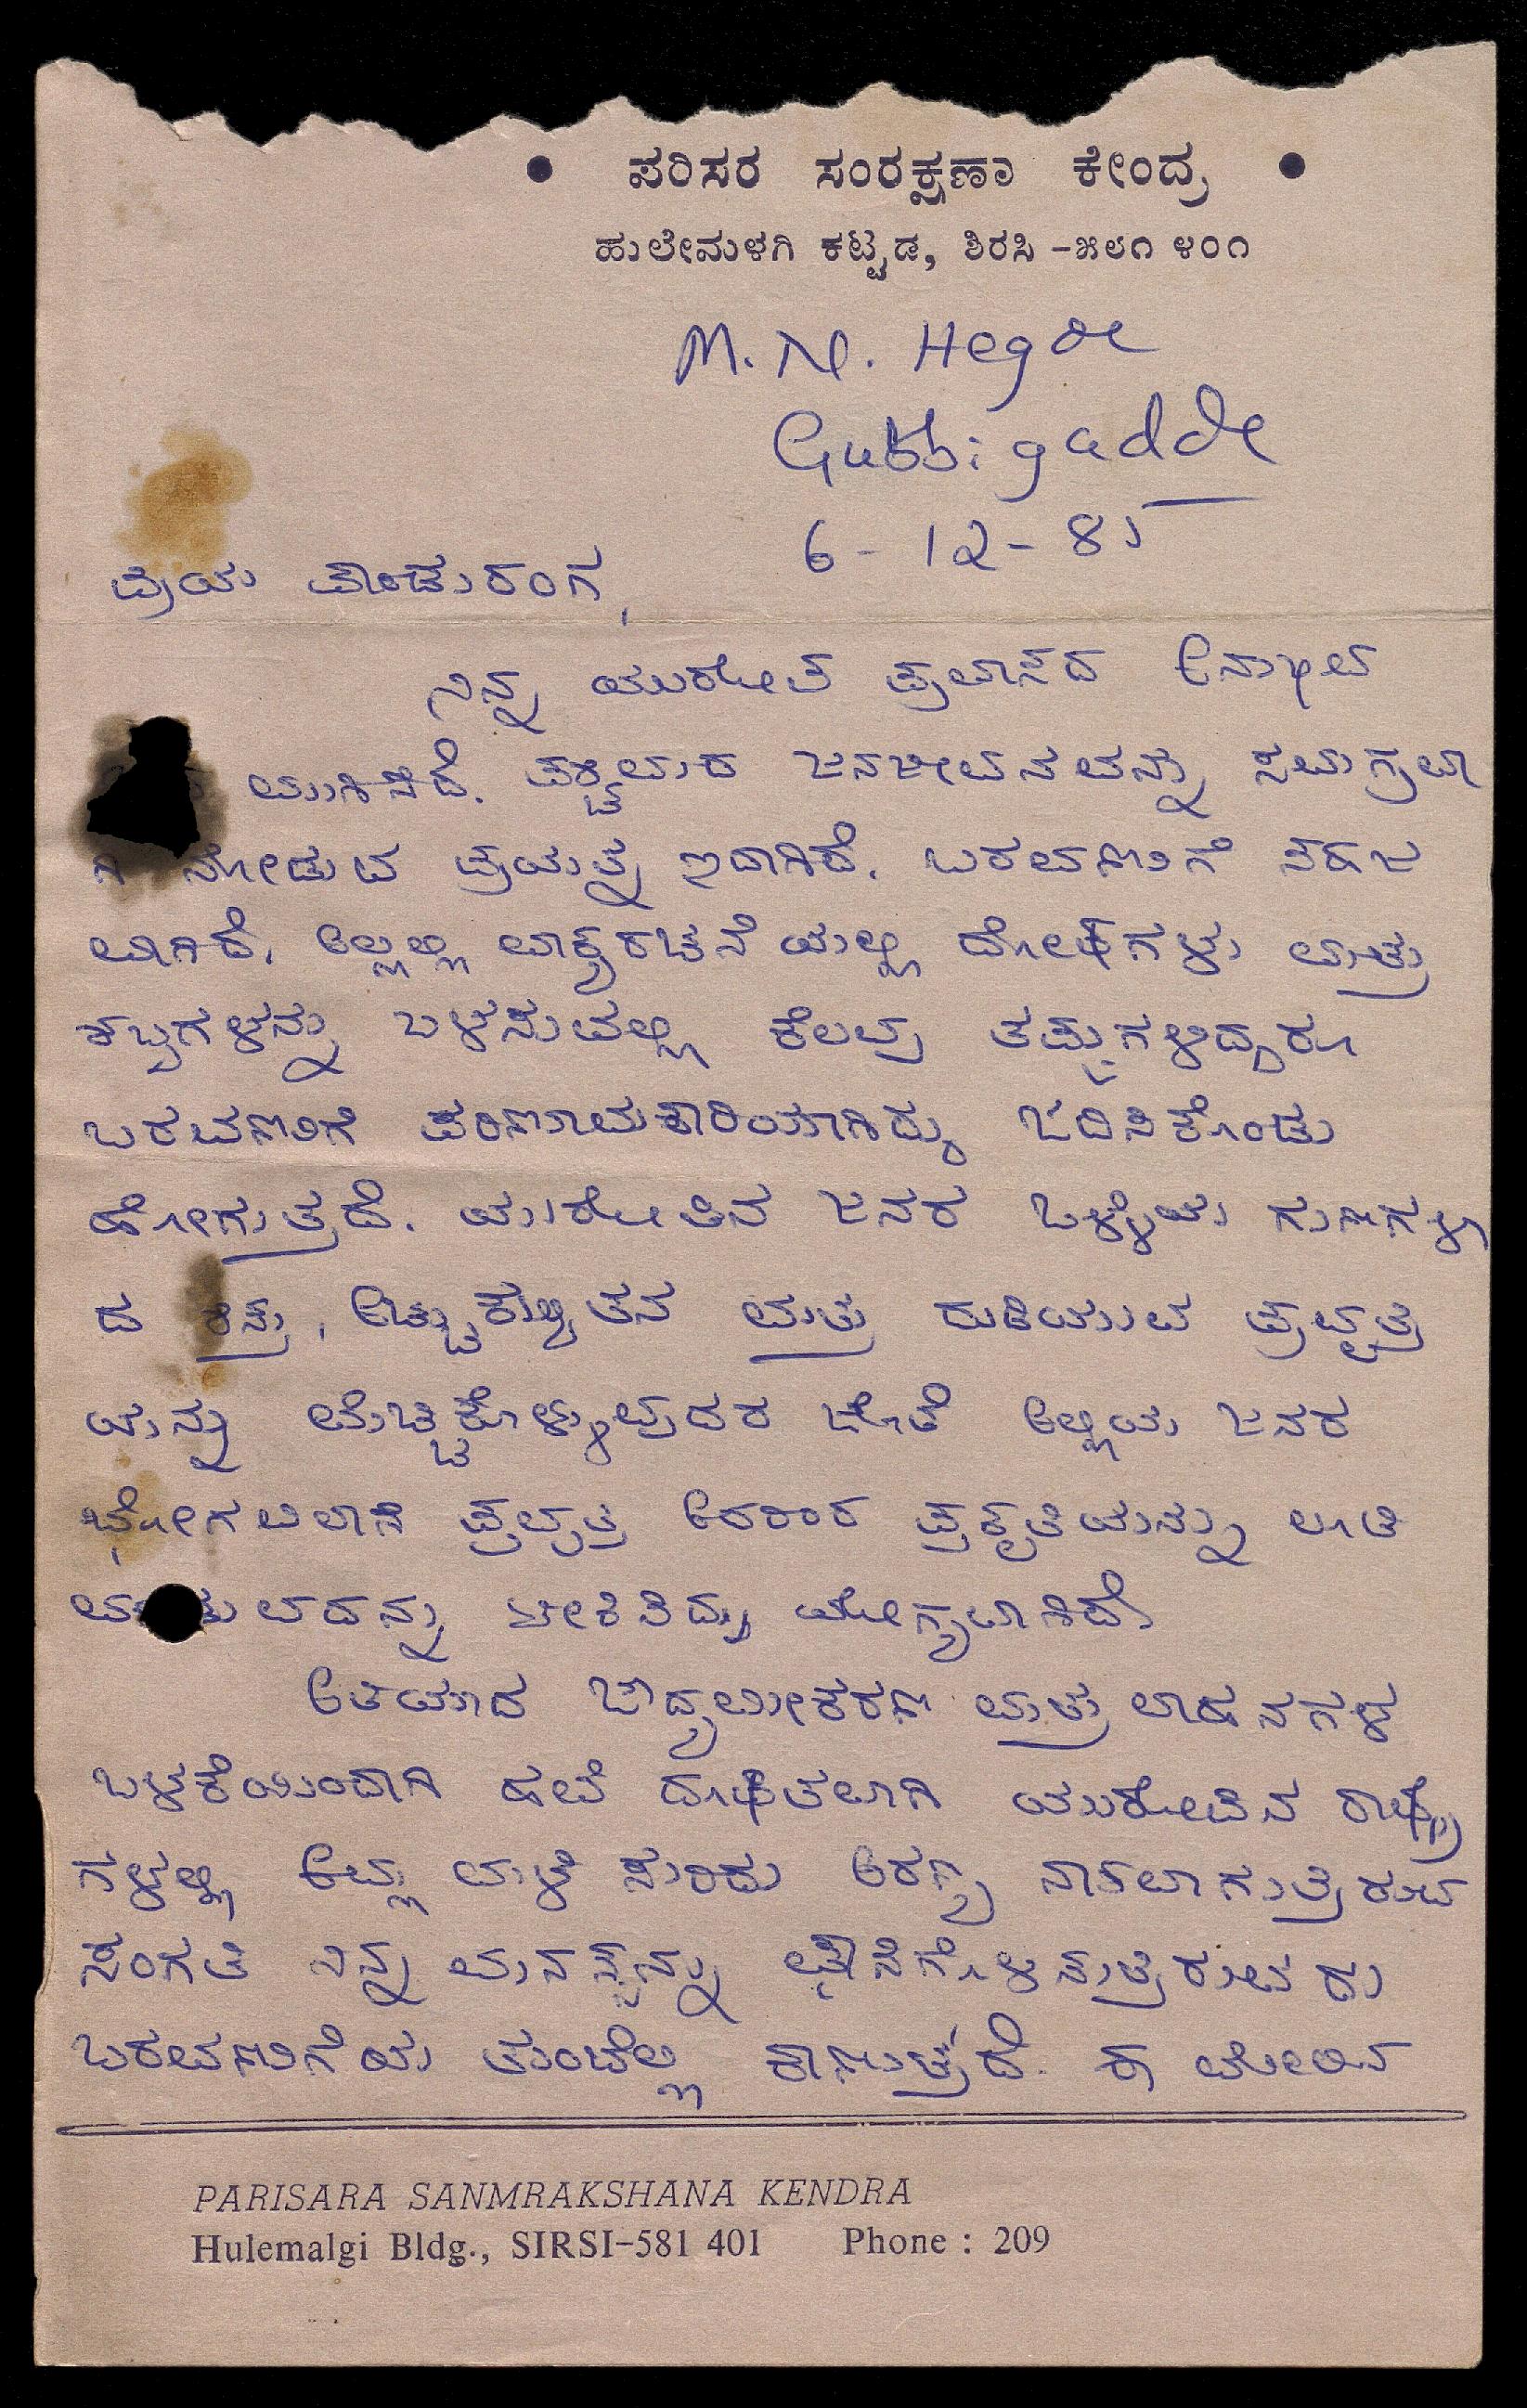 • ಪರಿಸರ ಸಂರಕ್ಷಣಾ ಕೇಂದ್ರ •
ಹುಲೇಮಳಗಿ ಕಟ್ಟಡ, ಶಿರಸಿ -೫೮೧ ೪೦೧
M. N. Hegde
Gubbigadde
6-12-85
ಪ್ರಿಯ ಪಾಂಡುರಂಗ,
ನಿನ್ನ ಯುರೋಪ ಪ್ರವಾಸದ ಅನುಭವ
ಮುಗಿಸಿದೆ. ಪಶ್ಚಿಮದ ಜನಜೀವನವನ್ನು ಸಮಗ್ರವಾ
ಗಿ ನೋಡುವ ಪ್ರಯತ್ನ ಇದಾಗಿದೆ. ಬರವಣಿಗೆ ಸಹಜ
ವಾಗಿದೆ. ಅಲ್ಲಲ್ಲಿ ವಾಕ್ಯರಚನೆಯಲ್ಲಿ ದೋಷಗಳು ಮತ್ತು
ಶಬ್ದಗಳನ್ನು ಬಳಸುವಲ್ಲಿ ಕೆಲವು ತಪ್ಪುಗಳಿದ್ದರೂ
ಬರವಣಿಗೆ ಪರಿಣಾಮಕಾರಿಯಾಗಿದ್ದು ಓದಿಸಿಕೊಂಡು
ಹೋಗುತ್ತದೆ. ಯುರೋಪಿನ ಜನರ ಒಳ್ಳೆಯ ಗುಣಗಳಾ
ದ ಶಿಸ್ತು, ಅಚ್ಚುಕಟ್ಟುತನ ಮತ್ತು ದುಡಿಯುವ ಪ್ರವೃತ್ತಿ
ಯನ್ನು ಮೆಚ್ಚಿಕೊಳ್ಳುವುದರ ಜೊತೆ ಅಲ್ಲಿಯ ಜನರ
ಭೋಗವಿಲಾಸಿ ಪ್ರವೃತ್ತಿ ಅದರಿಂದ ಪ್ರಕೃತಿಯನ್ನು ಲೂಟಿ
ಮಾಡುವದನ್ನು ಟೀಕಿಸಿದ್ದು ಯೋಗ್ಯವಾಗಿದೆ
ಅತಿಯಾದ ಔದ್ಯಮೀಕರಣ ಮತ್ತು ವಾಹನಗಳ
ಬಳಕೆಯಿಂದಾಗಿ ಹವೆ ದೂಷಿತವಾಗಿ ಯುರೋಪಿನ ರಾಷ್ಟ್ರ
ಗಳಲ್ಲಿ ಆಮ್ಲ ಮಳೆ ಸುರಿದು ಅರಣ್ಯ ನಾಶವಾಗುತ್ತಿರುವ
ಸಂಗತಿ ನಿನ್ನ ಮನಸ್ಸನ್ನು ಘಾಸಿಗೊಳಿಸುತ್ತಿರುವದು
ಬರವಣಿಗೆಯ ತುಂಬೆಲ್ಲ ಕಾಣುತ್ತದೆ. ಈ
PARISARA SANMRAKSHANA KENDRA
Hulemalgi Bldg., SIRSI-581 401 Phone : 209